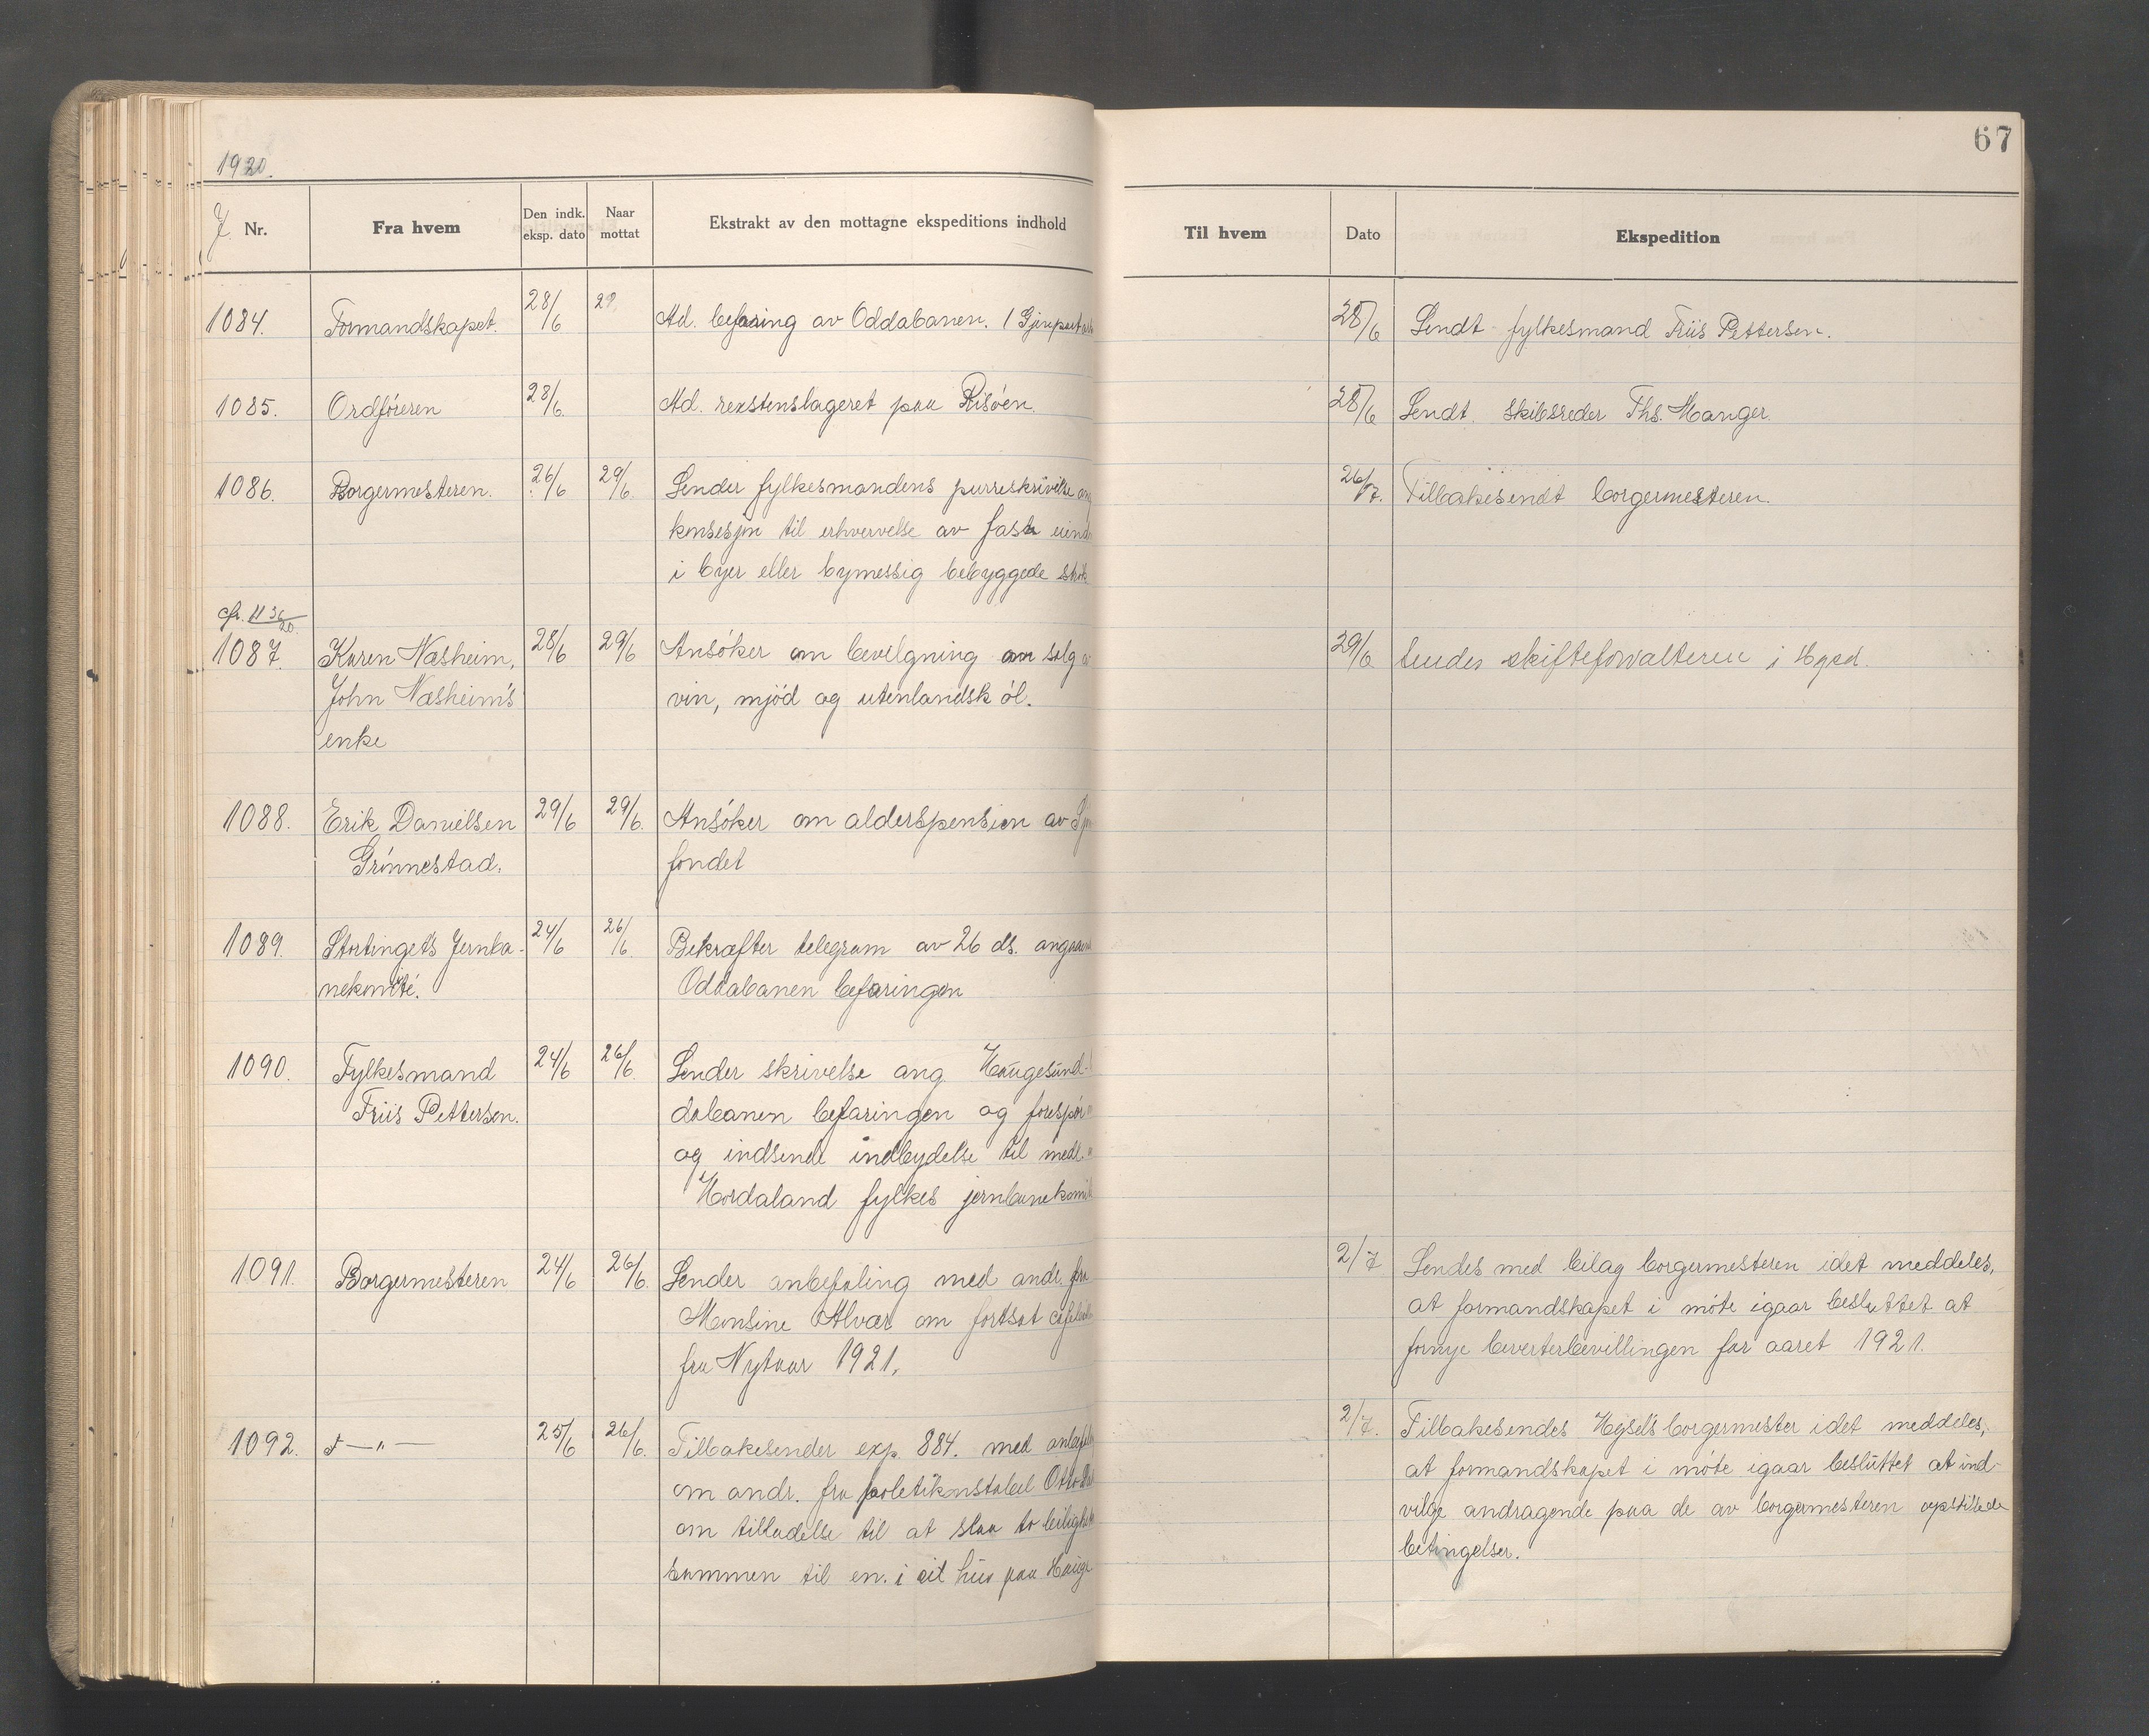 1920.
67
J. Nr.
Fra hvem
Den indk. eksp. dato
Naar mottat
Ekstrakt av den mottagne ekspeditions indhold
Til hvem
Dato
Ekspedition
1084.
Formandskapet.
28/6
29
Ad. befaring av Oddabanen.
28/6
Sendt fylkesmand Friis Pettersen.
1085.
Ordføreren
28/6.
Ad. lageret paa Risøen.
28/6
Sendt skibsreder Ths. Hanger.
1086.
Borgermesteren.
26/6
29/6.
Sender fylkesmandens purreskrivelse ang
konsesjon til erhvervelse av faste eiend
i byer eller bymessig bebyggede strøk
26/7.
Tilbakesendt borgermesteren.
cfr. 1136/20.
1087.
Karen Næsheim,
John Næsheim's
enke
28/6
29/6
Ansøker om bevilgning om salg a
vin, mjød og utenlandsk øl.
29/6
Sendes skifteforvalteren i Hgsd.
1088.
Erik Danielsen
Grønnestad.
29/6
29/6.
Ansøker om alderspension av
fondet
1089.
Stortingets Jernba-
nekomité.
24/6
26/6.
Bekræfter telegram av 26 ds. angaaend
Oddabanen befaringen
1090.
Fylkesmand
Friis Pettersen.
24/6
26/6
Sender skrivelse ang. Haugesund-
dabanen befaringen og forespør
og indsende indbydelse til medl.
Hordaland fylkes jernbanekomit
1091.
Borgermesteren
24/6
26/6.
Sender anbefaling med andr. fra
Monsine Alvær om fortsat
fra Nytaar 1921.
2/7
Sendes med bilag borgermesteren idet meddeles,
at formandskapet i møte igaar besluttet at
fornye beverterbevillingen for aaret 1921.
1092.
— " —
25/6
26/6.
Tilbakesender exp. 884. med anbefal
om andr. fra politikonstabel Otto
om tilladelse til at slaa to leilighet
sammen til en. i sit hus paa Hauge
2/7.
Tilbakesendes Hgsds borgermester idet meddeles,
at formandskapet i møte igaar besluttet at ind-
vilge andragende paa de av borgermesteren opstillede
betingelser.